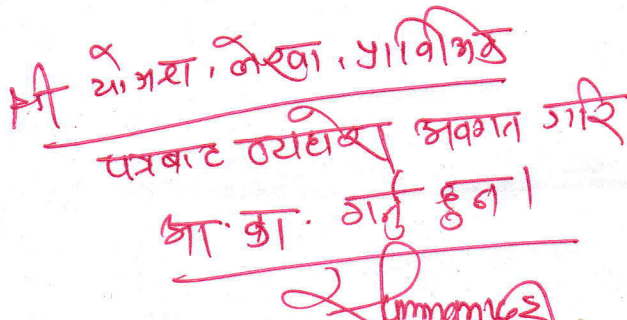 श्री यो.अ.श., लेखा, प्राविधिक
पत्रबाट व्यहोरा अवगत गरि
आ.का. गर्नु हुन।